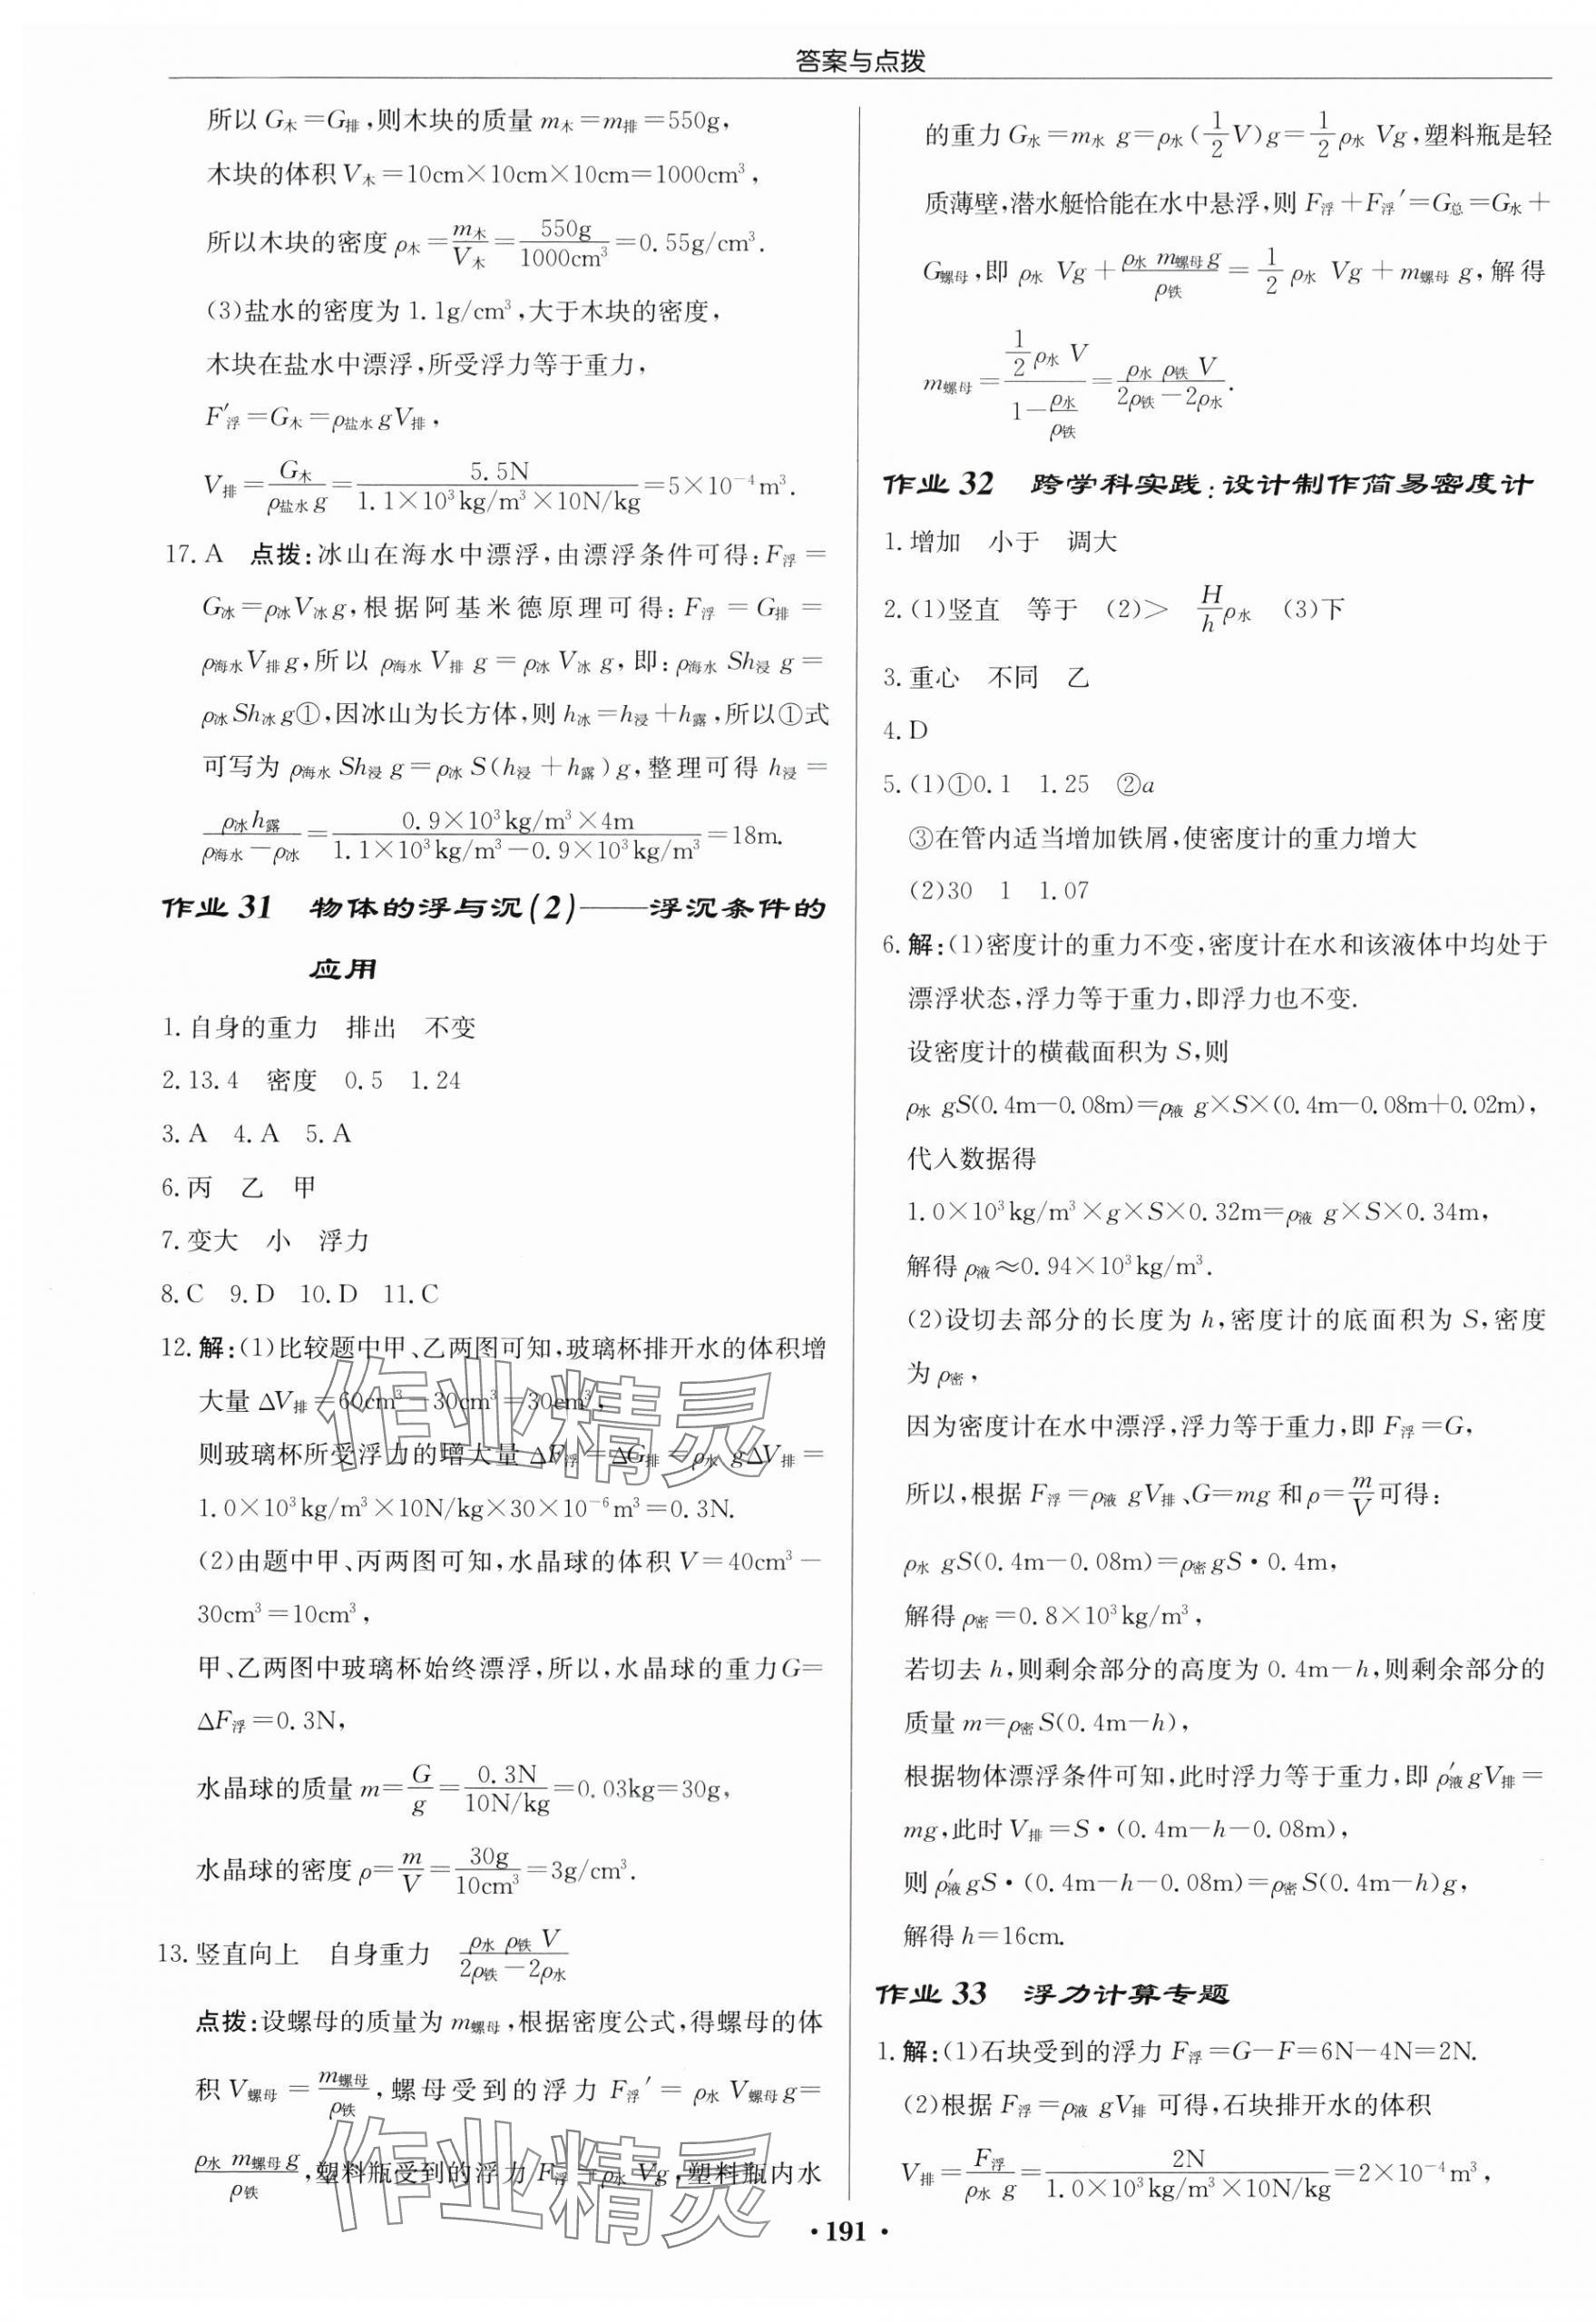 答案与点拨
所以 G木=G排,则木块的质量 m木=m排=550g,
木块的体积 V木=10cm×10cm×10cm=1000cm³,
所以木块的密度 ρ木=m木/V木=550g/1000cm³=0.55g/cm³.
(3)盐水的密度为 1.1g/cm³,大于木块的密度,
木块在盐水中漂浮,所受浮力等于重力,
F′浮=G木=ρ盐水gV排,
V排=G木/ρ盐水g=5.5N/1.1×10³kg/m³×10N/kg=5×10⁻⁴m³.
17.A 点拨:冰山在海水中漂浮,由漂浮条件可得:F浮=
G冰=ρ冰V冰g,根据阿基米德原理可得:F浮=G排=
ρ海水V排g,所以 ρ海水V排g=ρ冰V冰g,即:ρ海水Sh浸g=
ρ冰Sh冰g①,因冰山为长方体,则 h冰=h浸+h露,所以①式
可写为 ρ海水Sh浸g=ρ冰S(h浸+h露)g,整理可得 h浸=
ρ冰h露/ρ海水-ρ冰=0.9×10³kg/m³×4m/1.1×10³kg/m³-0.9×10³kg/m³=18m.
作业 31 物体的浮与沉(2)——浮沉条件的
应用
1.自身的重力 排出 不变
2.13.4 密度 0.5 1.24
3.A 4.A 5.A
6.丙 乙 甲
7.变大 小 浮力
8.C 9.D 10.D 11.C
12.解:(1)比较题中甲、乙两图可知,玻璃杯排开水的体积增
大量 ΔV排=60cm³-30cm³=30cm³,
则玻璃杯所受浮力的增大量 ΔF浮=ΔG排=ρ水gΔV排=
1.0×10³kg/m³×10N/kg×30×10⁻⁶m³=0.3N.
(2)由题中甲、丙两图可知,水晶球的体积 V=40cm³-
30cm³=10cm³,
甲、乙两图中玻璃杯始终漂浮,所以,水晶球的重力G=
ΔF浮=0.3N,
水晶球的质量 m=G/g=0.3N/10N/kg=0.03kg=30g,
水晶球的密度 ρ=m/V=30g/10cm³=3g/cm³.
13.竖直向上 自身重力 ρ水ρ铁V/2ρ铁-2ρ水
点拨:设螺母的质量为 m螺母,根据密度公式,得螺母的体
积 V螺母=m螺母/ρ铁,螺母受到的浮力 F浮′=ρ水V螺母g=
ρ水m螺母g/ρ铁,塑料瓶受到的浮力 F浮=ρ水Vg,塑料瓶内水
的重力 G水=m水g=ρ水(1/2V)g=1/2ρ水Vg,塑料瓶是轻
质薄壁,潜水艇恰能在水中悬浮,则 F浮+F浮′=G总=G水+
G螺母,即 ρ水Vg+ρ水m螺母g/ρ铁=1/2ρ水Vg+m螺母g,解得
m螺母=1/2ρ水V/1-ρ水/ρ铁=ρ水ρ铁V/2ρ铁-2ρ水.
作业 32 跨学科实践:设计制作简易密度计
1.增加 小于 调大
2.(1)竖直 等于 (2)> H/hρ水 (3)下
3.重心 不同 乙
4.D
5.(1)①0.1 1.25 ②a
③在管内适当增加铁屑,使密度计的重力增大
(2)30 1 1.07
6.解:(1)密度计的重力不变,密度计在水和该液体中均处于
漂浮状态,浮力等于重力,即浮力也不变.
设密度计的横截面积为 S,则
ρ水gS(0.4m-0.08m)=ρ液g×S×(0.4m-0.08m+0.02m),
代入数据得
1.0×10³kg/m³×g×S×0.32m=ρ液g×S×0.34m,
解得 ρ液≈0.94×10³kg/m³.
(2)设切去部分的长度为 h,密度计的底面积为 S,密度
为 ρ密,
因为密度计在水中漂浮,浮力等于重力,即 F浮=G,
所以,根据 F浮=ρ液gV排、G=mg 和 ρ=m/V可得:
ρ水gS(0.4m-0.08m)=ρ密gS·0.4m,
解得 ρ密=0.8×10³kg/m³,
若切去 h,则剩余部分的高度为 0.4m-h,则剩余部分的
质量 m=ρ密S(0.4m-h),
根据物体漂浮条件可知,此时浮力等于重力,即 ρ′液gV排=
mg,此时 V排=S·(0.4m-h-0.08m),
则 ρ′液gS·(0.4m-h-0.08m)=ρ密S(0.4m-h)g,
解得 h=16cm.
作业 33 浮力计算专题
1.解:(1)石块受到的浮力 F浮=G-F=6N-4N=2N.
(2)根据 F浮=ρ液gV排 可得,石块排开水的体积
V排=F浮/ρ水g=2N/1.0×10³kg/m³×10N/kg=2×10⁻⁴m³,
·191·
作业精灵
作业精灵